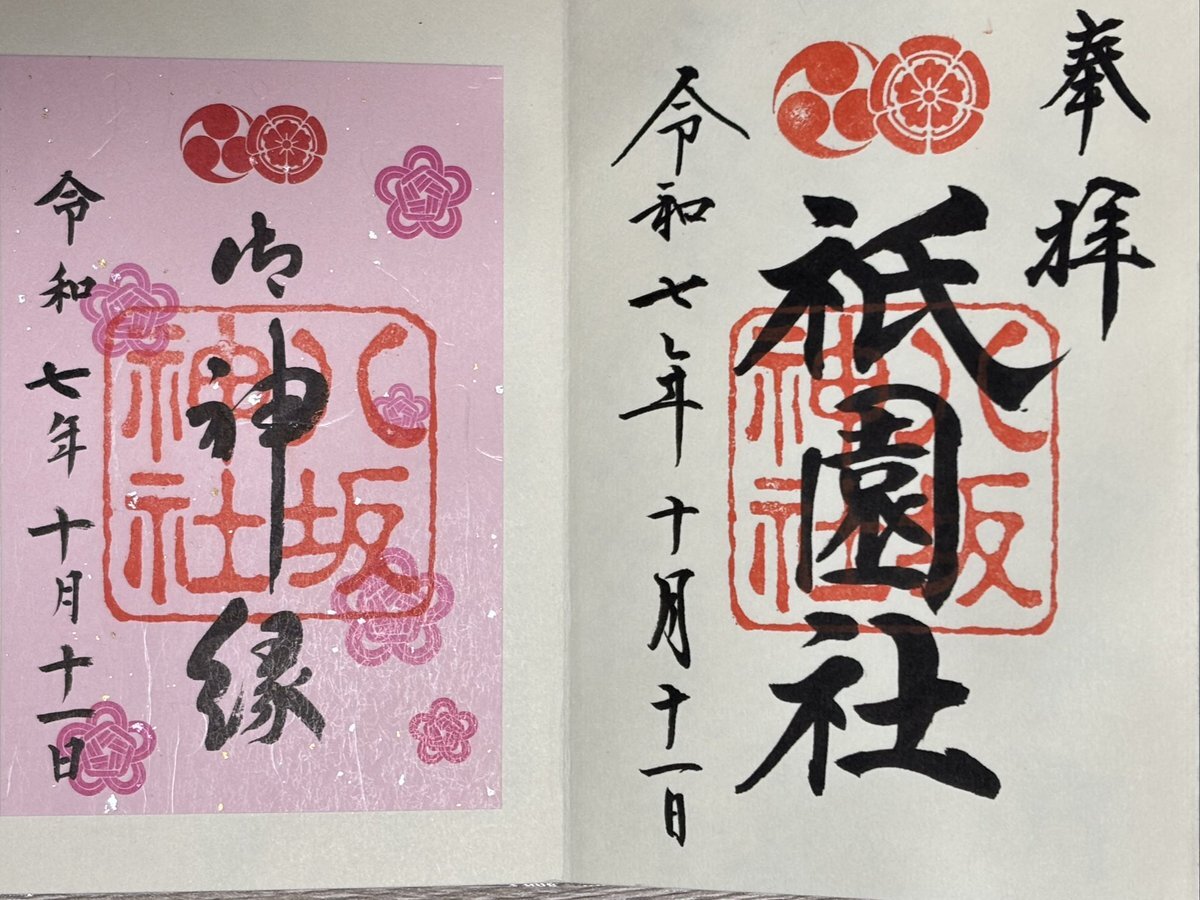 奉拝
祇園社
八坂神社
令和七年十月十一日
御神縁
八坂神社
令和七年十月十一日